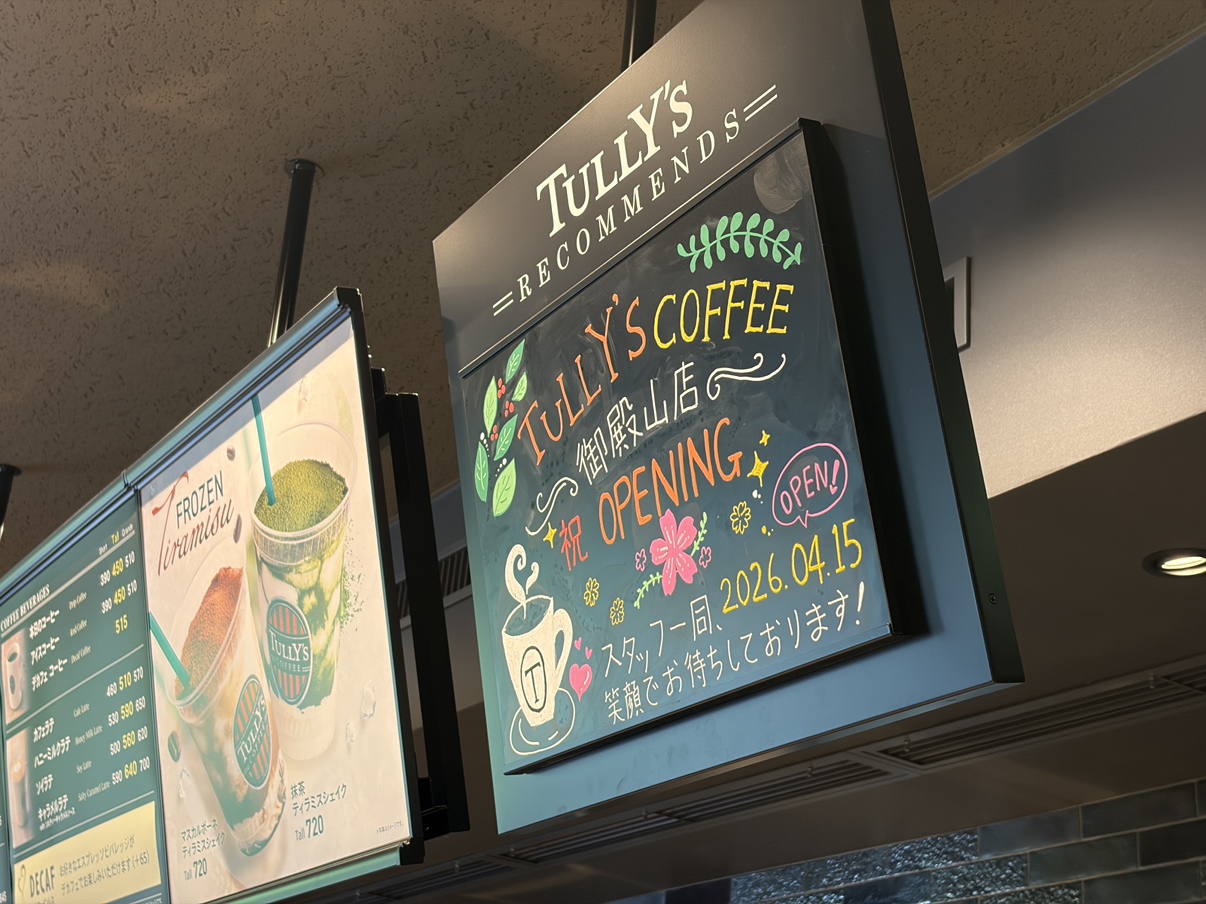 TULLY'S
RECOMMENDS
TULLY'S COFFEE
御殿山店
祝 OPENING
OPEN!
2026.04.15
スタッフ一同、
笑顔でお待ちしております!
T
FROZEN
Tiramisu
TULLY'S
COFFEE
TULLY'S
マスカルポーネ
ティラミスシェイク
Tall 720
抹茶
ティラミスシェイク
Tall 720
COFFEE BEVERAGES
Short Tall Grande
本日のコーヒー Drip Coffee 390 450 510
アイスコーヒー Iced Coffee 390 450 510
デカフェ コーヒー Decaf Coffee 515
カフェラテ Cafe Latte 460 510 570
ハニーミルクラテ Honey Milk Latte 530 590 650
ソイラテ Soy Latte 500 560 620
キャラメルラテ Salty Caramel Latte 580 640 700
DECAF
お好きなエスプレッソビバレッジが
デカフェでお楽しみいただけます(+65)